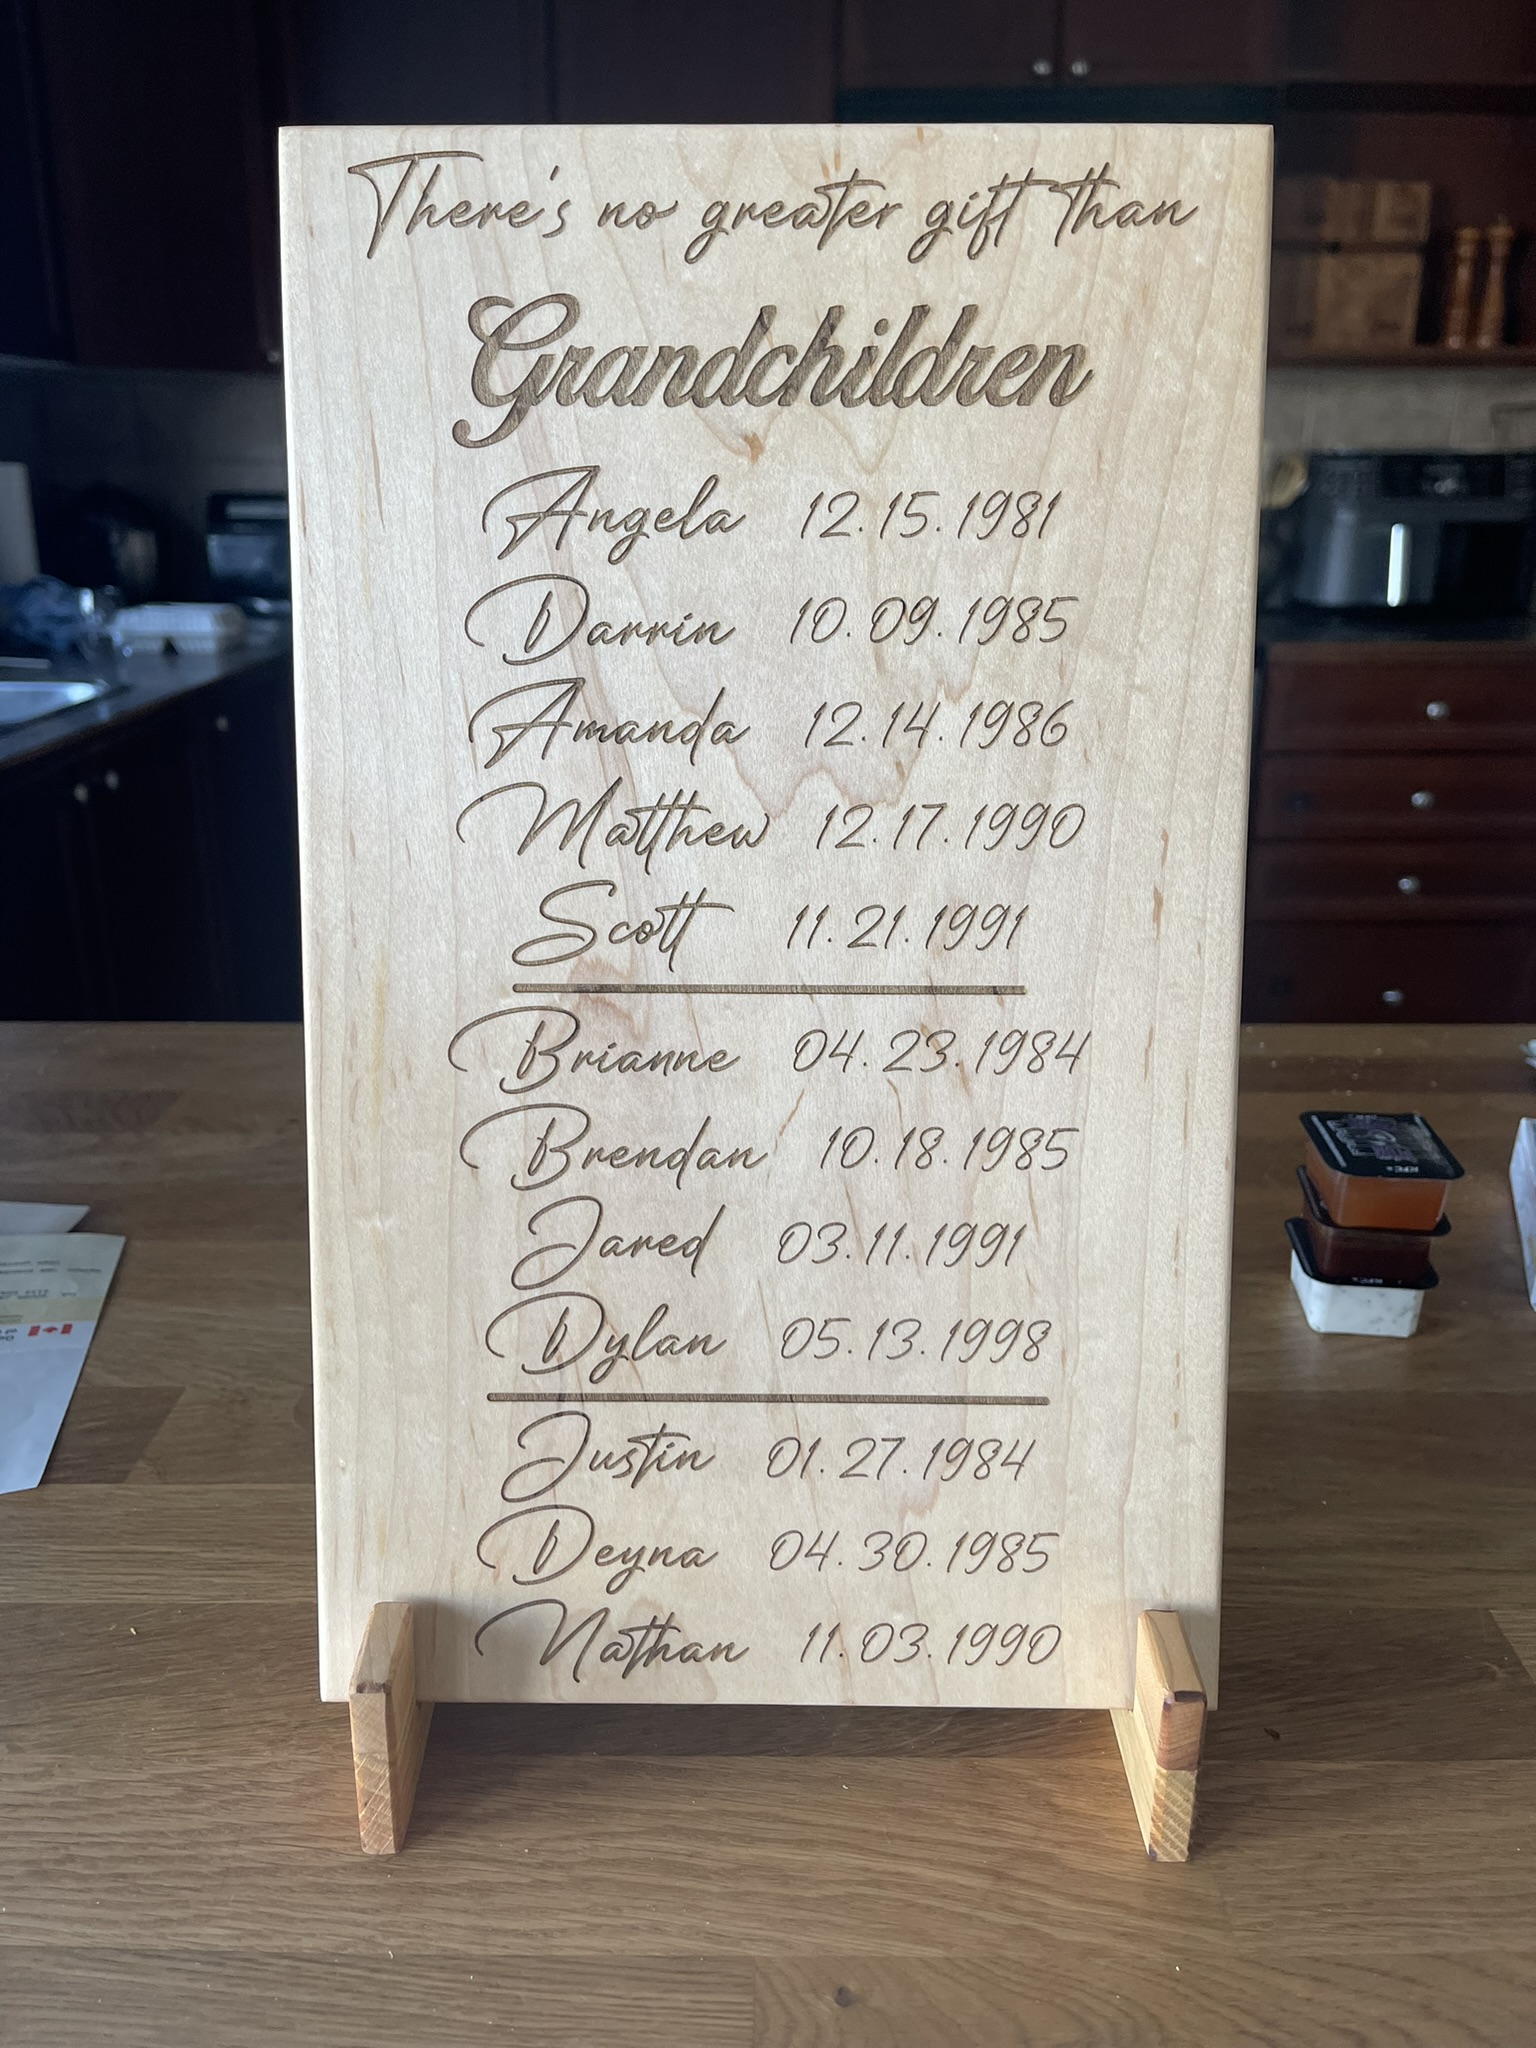 There's no greater gift than
Grandchildren
Angela 12.15.1981
Darrin 10.09.1985
Amanda 12.14.1986
Matthew 12.17.1990
Scott 11.21.1991
Brianne 04.23.1984
Brendan 10.18.1985
Jared 03.11.1991
Dylan 05.13.1998
Justin 01.27.1984
Deyna 04.30.1985
Nathan 11.03.1990
KFC
KFC